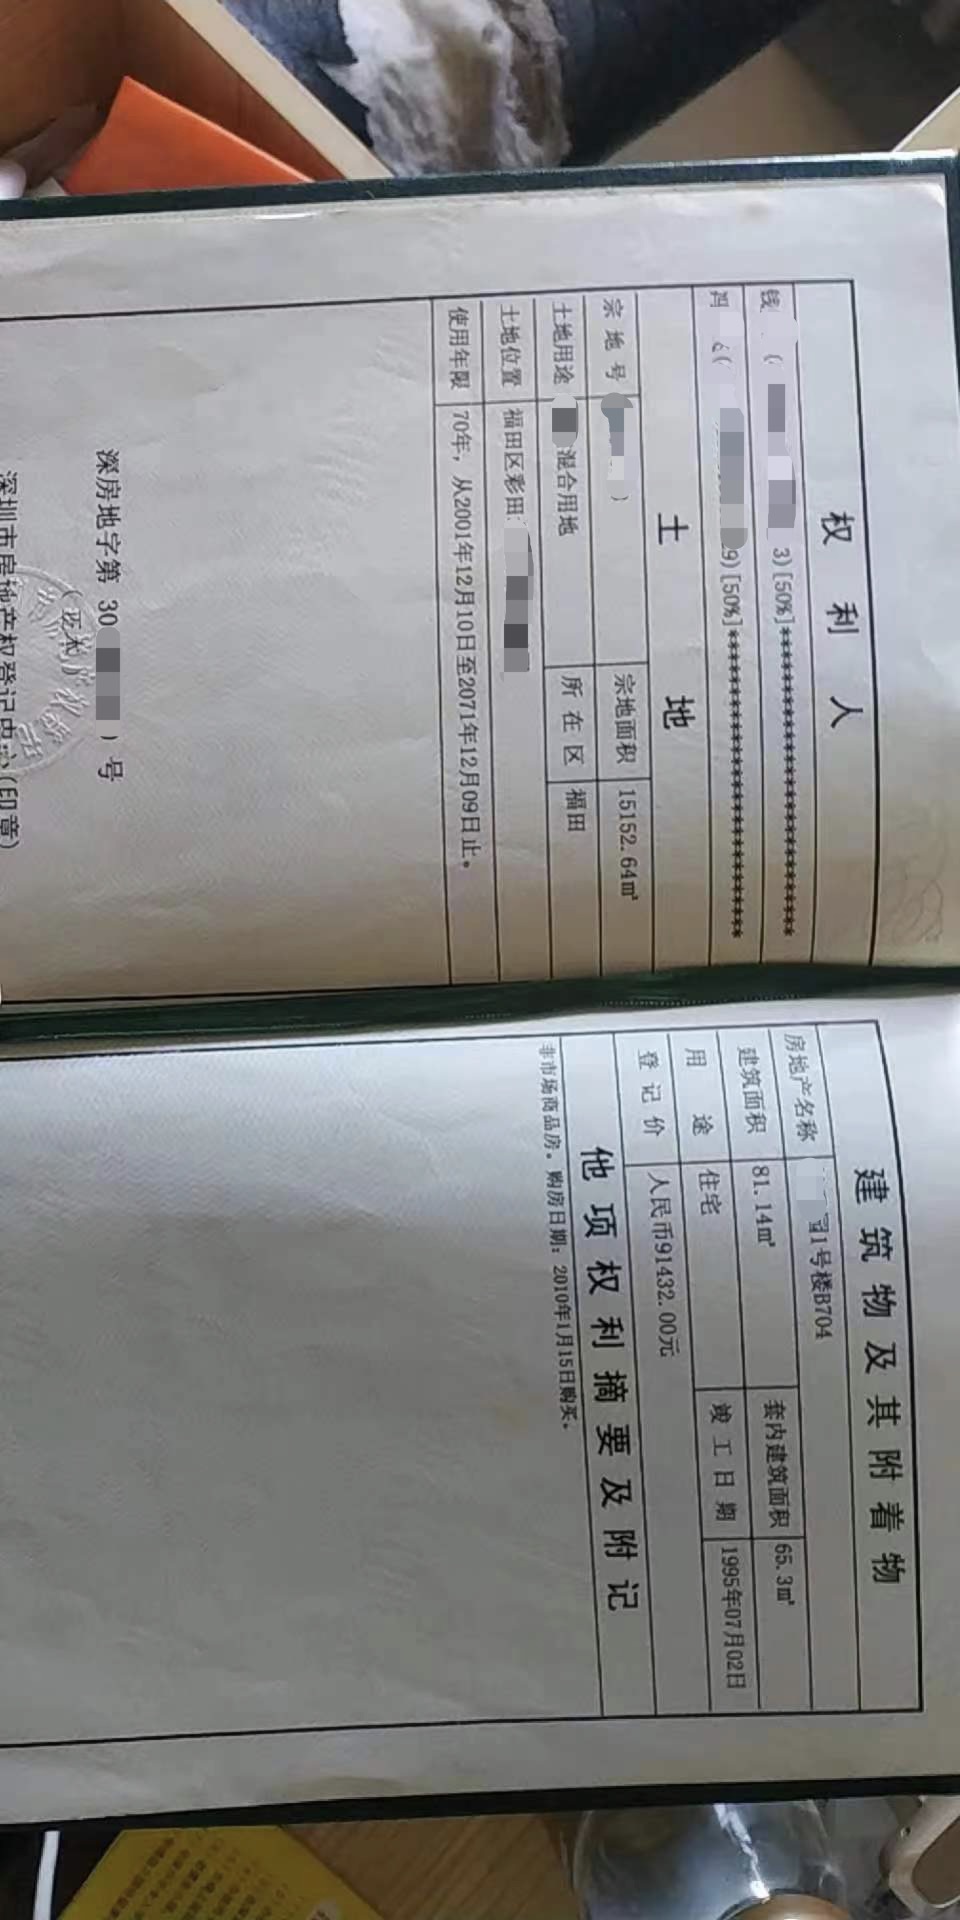 权利人
钱 ( 3)[50%]*****************************
( 9)[50%]*****************************
土地
宗地号 ) 宗地面积 15152.64㎡
土地用途 混合用地 所在区 福田
土地位置 福田区彩田
使用年限 70年，从2001年12月10日至2071年12月09日止。
深房地字第 30 ) 号
深圳市房地产权登记中心(印章)
建筑物及其附着物
房地产名称 1号楼B704
建筑面积 81.14㎡ 套内建筑面积 65.3㎡
用途 住宅 竣工日期 1995年07月02日
登记价 人民币91432.00元
他项权利摘要及附记
非市场商品房。购房日期：2010年1月15日购买。